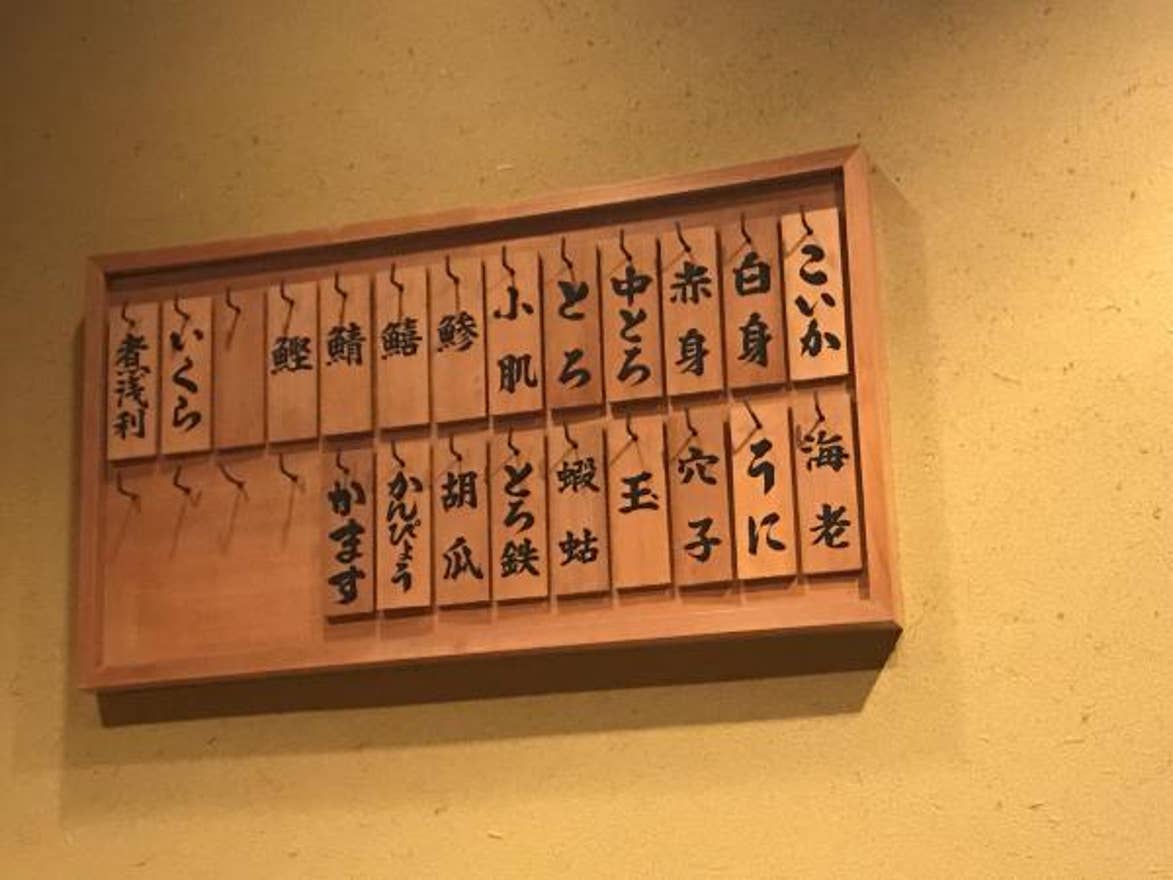 こいか
白身
赤身
中とろ
とろ
小肌
鯵
鱚
鯖
鰹
いくら
煮浅利
海老
うに
穴子
玉
蝦蛄
とろ鉄
胡瓜
かんぴょう
かます